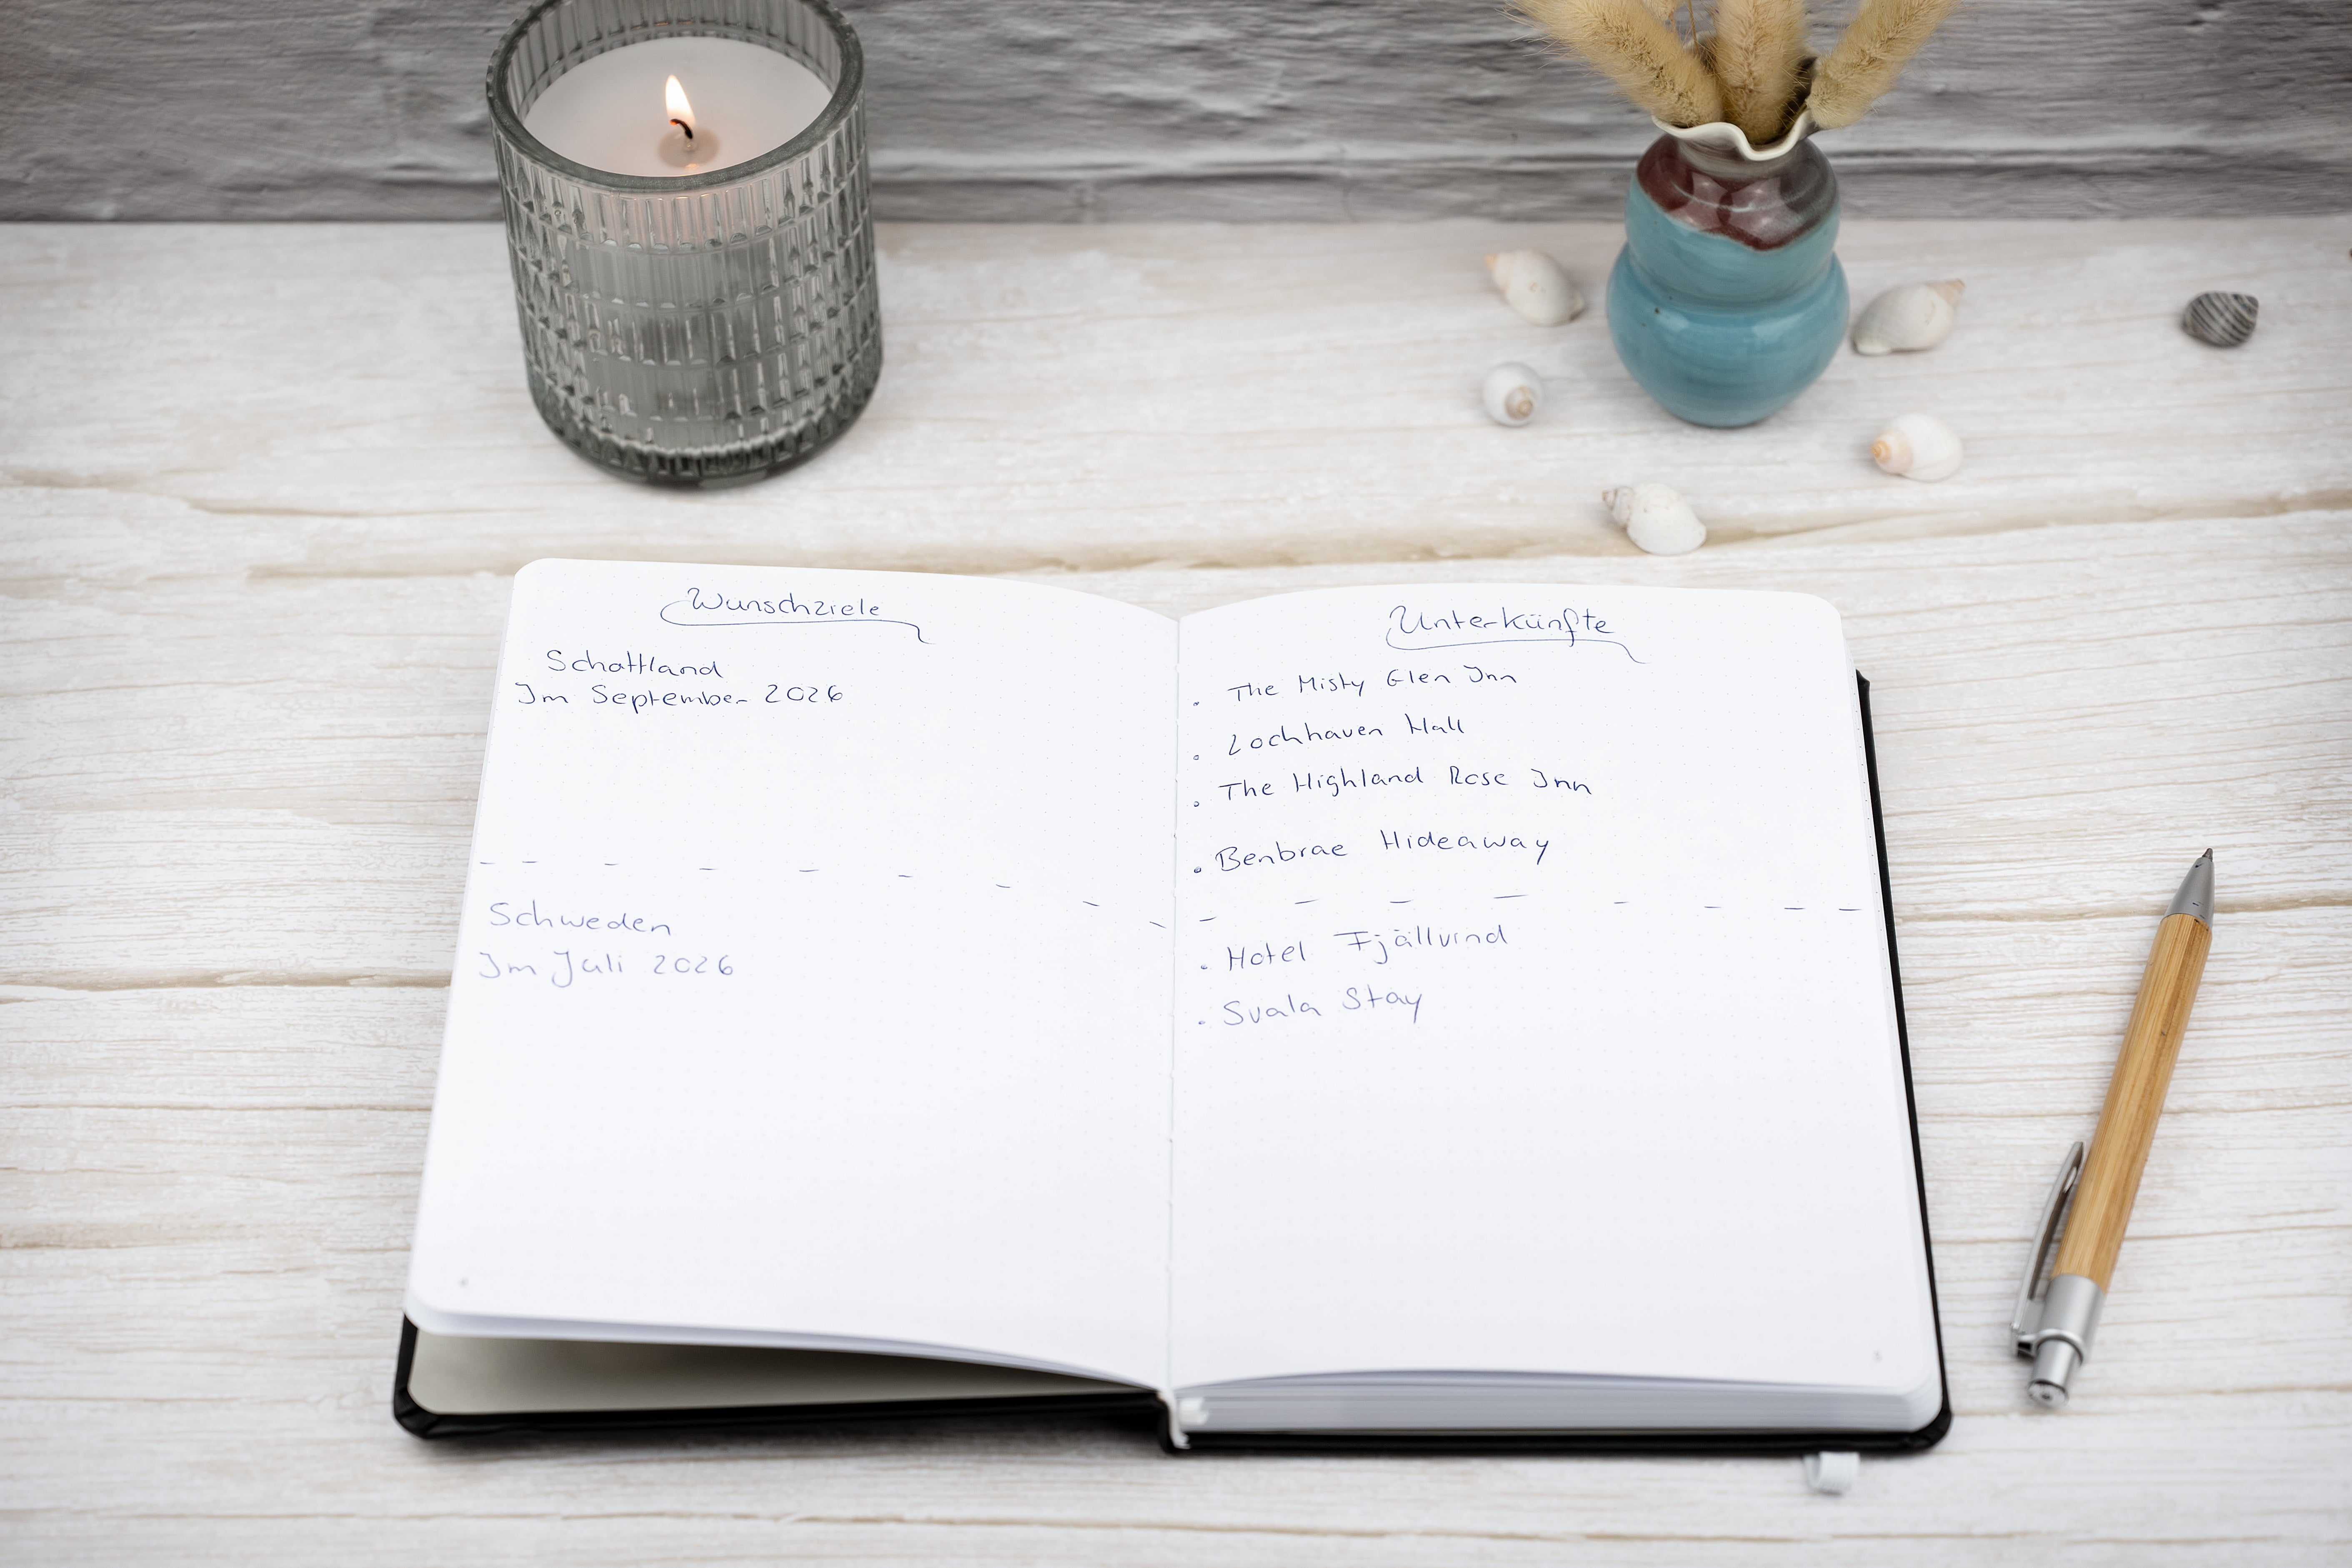 Wunschziele
Schottland
Im September 2026
Schweden
Im Juli 2026
4
Unterkünfte
. The Misty Glen Inn
. Lochhaven Hall
. The Highland Rose Inn
. Benbrae Hideaway
. Hotel Fjällvind
. Svala Stay
5